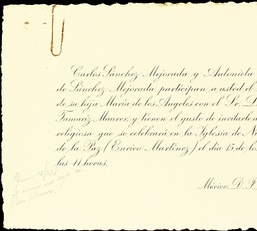 Carlos Sánchez Mejorada y Antonieta
de Sánchez Mejorada participan a usted el
de su hija María de los Angeles con el Sr. D
Tamariz Maurer, y tienen el gusto de invitarle a
religiosa que se celebrará en la Iglesia de N
de la Paz (Enrico Martínez) el día 15 de lo
las 11 horas.
México, D. F.